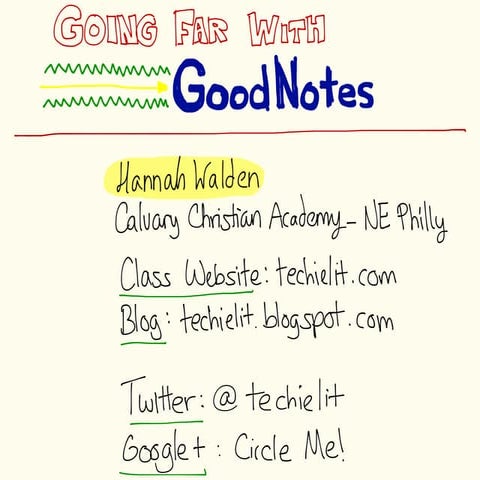 GOING FAR WITH
GoodNotes
Hannah Walden
Calvary Christian Academy - NE Philly
Class Website: techielit.com
Blog: techielit.blogspot.com
Twitter: @techielit
Google+: Circle Me!